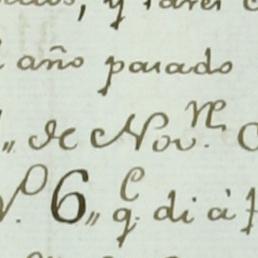 , y
año parado
„ de Nov.re
N.º 6„ q.e di á